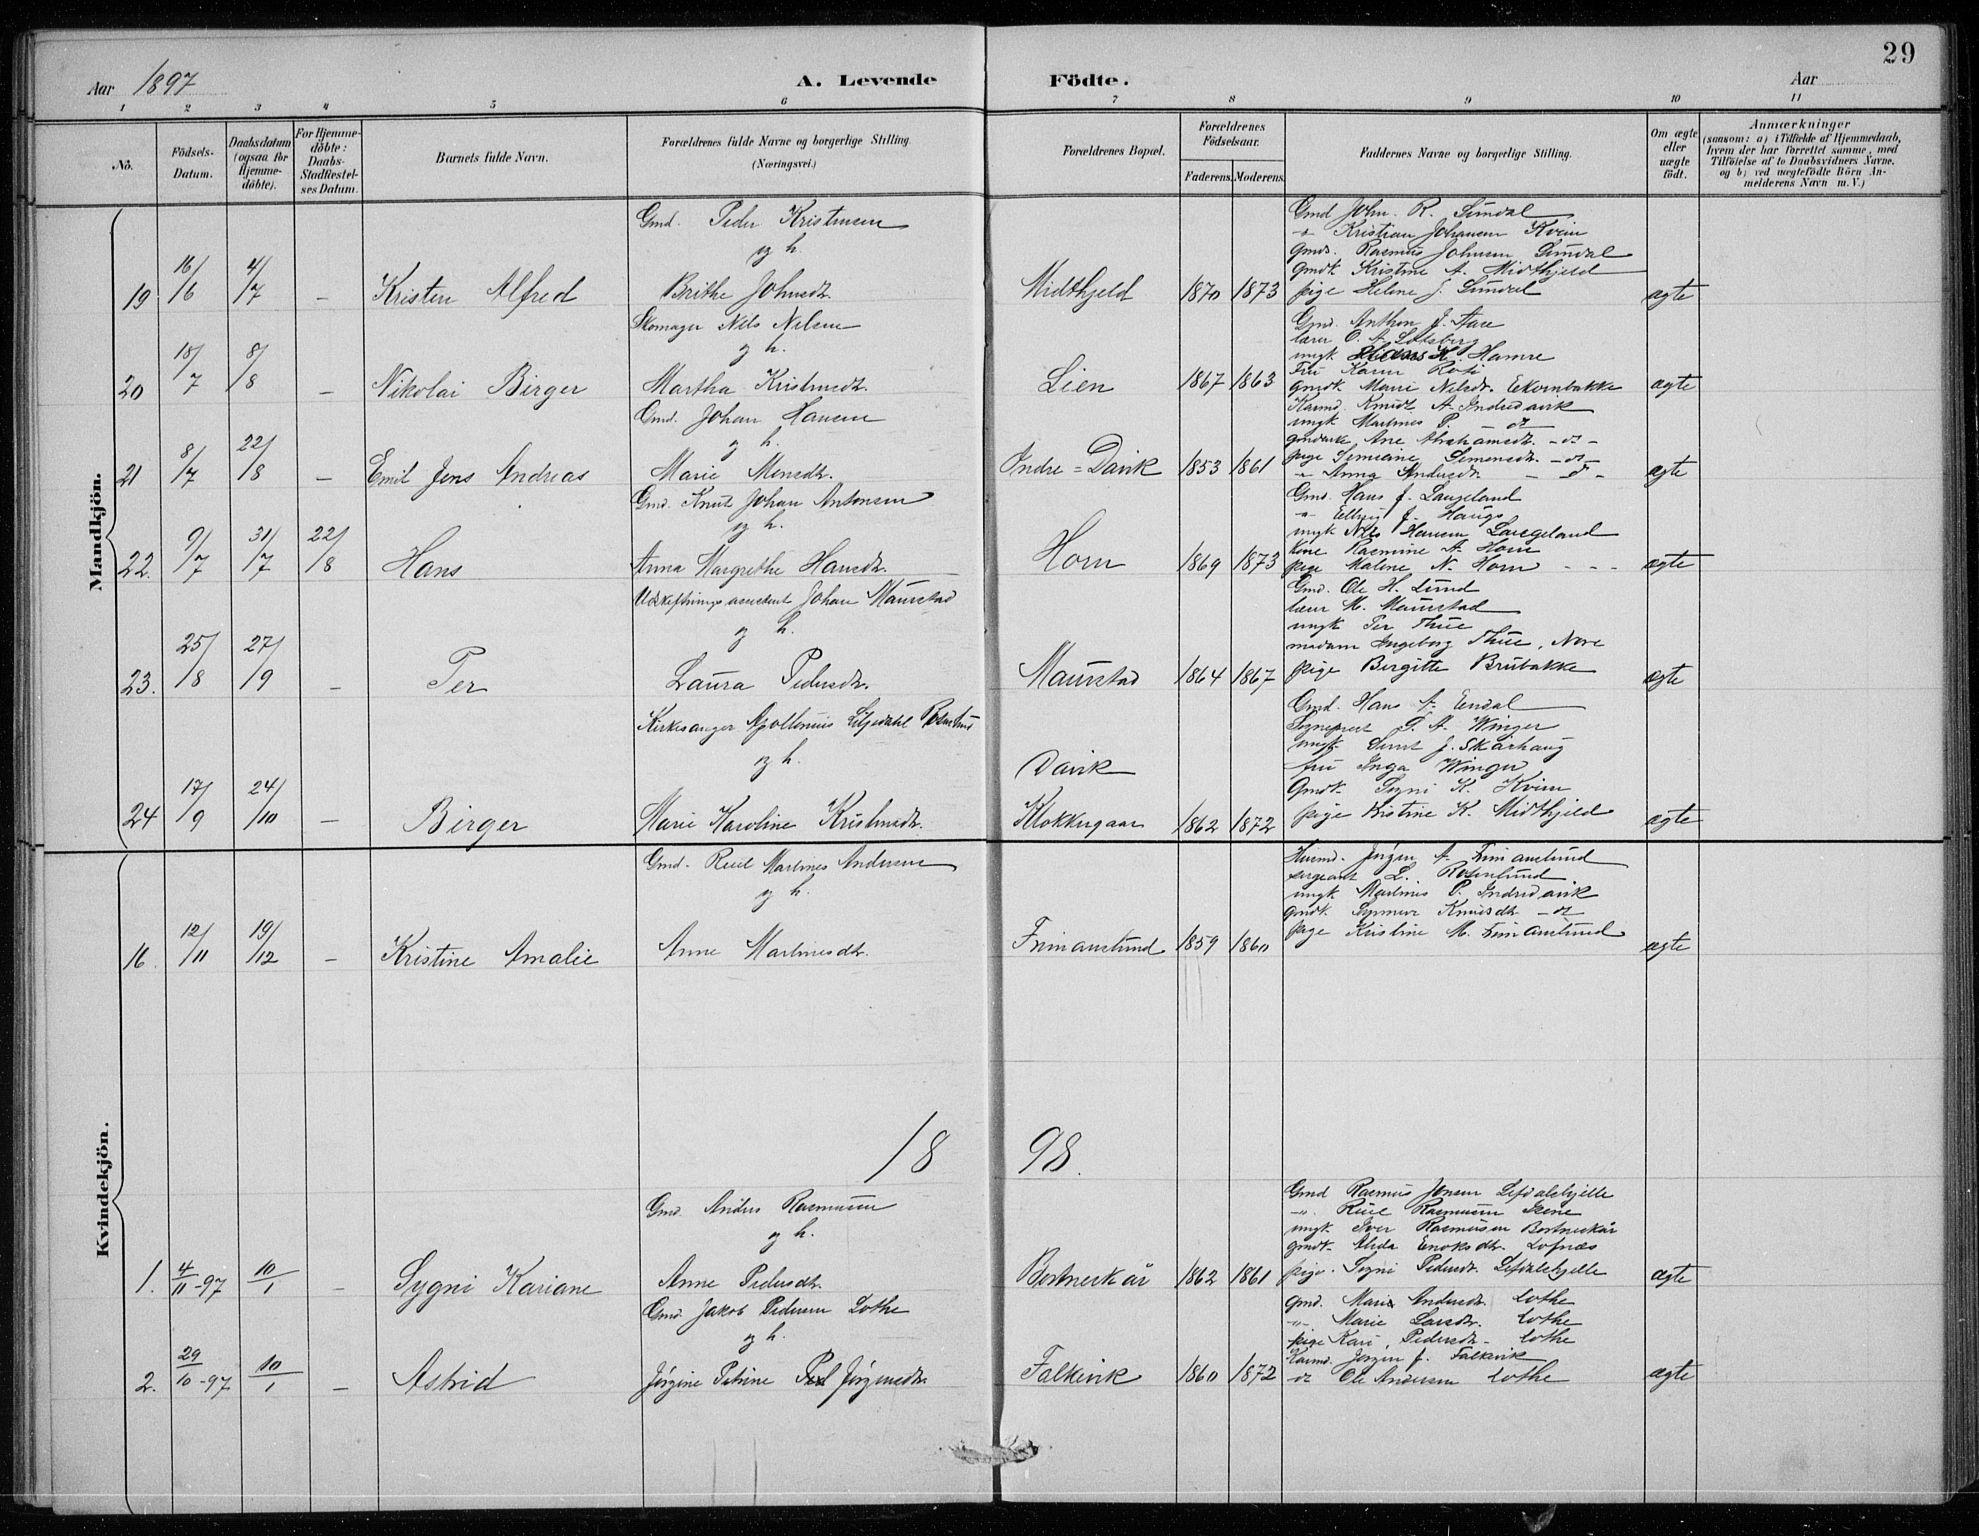 29
Aar 1897 A. Levende Födte. Aar
1 2 3 4 5 6 7 8 9 10 11
No.
Födsels-Datum.
Daabsdatum (ogsaa for Hjemme-döbte).
For Hjemme-döbte: Daabs-Stadfæstel-ses Datum.
Barnets fulde Navn.
Forældrenes fulde Navne og borgerlige Stilling
(Næringsvei.)
Forældrenes Bopæl.
Forældrenes Födselsaar.
Faderens. Moderens.
Faddernes Navne og borgerlige Stilling.
Om ægte eller uægte födt.
Anmærkninger
(saasom: a) i Tilfælde af Hjemmedaab, hvem der har forrettet samme, med Tilföielse af to Daabsvidners Navne, og b) ved uægtefödte Börn An-melderens Navn m. V.)
Mandkjön.
19 16/6 4/7 – Kristen Alfred
Gmd. Peder Kristensen
og h.
Brithe Johnsdtr.
Midthjeld 1870 1873
Gmd John R. Sundal
" Kristian Johansen Kvien
gmds. Rasmus Johnsen Sundal
gmdt. Kristine A. Midthjeld
pige Helene J. Sundal
ægte
20 18/7 8/8 – Nikolai Birger
Skomager Nils Nilsen
og h.
Martha Kristensdtr.
Lien 1867 1863
Gmd. Anthon J. Aase
lærer O. A. Lotsberg
ungk. K. Hamre
Fru Karen Roti
gmdt. Marie Nilsdtr. Eikornbakke
ægte
21 8/7 22/8 – Emil Jens Andreas
Gmd. Johan Hansen
og h.
Marie Monsdtr.
Indre = Davik 1853 1861
Kaarmd. Knudt A. Indredavik
ungk Martines P. – do –
Ane Abrahamsdtr. – do –
pige Simeine Simonsdtr. – do –
" Anna Andersdtr. – do –
ægte
22. 9/7 31/7 22/8 Hans
Gmd. Knut Johan Antonsen
og h.
Anna Margrethe Hansdtr.
Horn 1869 1873
Gmd. Hans J. Langeland
" Elling J. Haugs
ungk Nils Hansen Langeland
kone Rasmine A. Horn
pige Maline N. Horn - - -
ægte
23. 25/8 27/9 – Per
Udskiftningsassistent Johan Maurstad
og h.
Laura Pedersdtr.
Maurstad 1864 1867
Gmd. Ole H. Lund
lærer M. Maurstad
ungk Per Thue
madam Ingeborg Thue, Nore
pige Bergitte Brubakke
ægte
24 17/9 24/10 – Birger
Kirkesanger Apollonius Liljedahl Rosenlund
og h.
Marie Karoline Kristensdtr.
Davik
Klokkergaar 1862 1872
Gmd. Hans A. Endal
Sogneprest P. A. Winger
ungk. Sernt J. Skårhaug
fru Inga Winger
Gmdt. Sygni K. Kvien
pige Kristine K. Midthjeld
ægte
Kvindekjön.
16. 12/11 19/12 – Kristine Amalie
Gmd. Reiel Martines Andersen
og h.
Anne Martinesdtr.
Frimanslund 1859 1860
Husmd. Jørgen A. Frimanslund
sergeant L. Rosenlund
ungk Martines P. Indredavik
gmdt. Synneve Knutsdtr – do
pige Kristine M. Frimanslund
ægte
18 98.
1. 4/11-97 10/1 – Sygni Kariane
Gmd. Anders Rasmussen
og h.
Anne Pedersdtr.
Bortneskår 1862 1861
Gmd Rasmus Jonsen Lefdalshjelle
" Reiel Rasmussen Isene
ungk. Iver Rasmussen Bortneskår
gmdt. Alida Enoksdtr. Lofnæs
pige. Sygni Pedersdtr. Lefdalshjelle
ægte
2. 29/10-97 10/1 – Astrid
Gmd. Jakob Pedersen Lothe
og h.
Jørgine Petrine Jørgensdtr.
Falkevik 1860 1872
Gmd. Marie Andersdtr. Lothe
" Marie Larsdtr. Lothe
pige Kari Pedersdtr – Lothe
Kaarmd. Jørgen J. Falkevik
do Ole Andersen Lothe
ægte